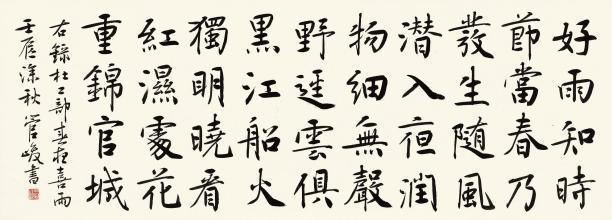 好雨知時
節當春乃
發生随風
潜入夜潤
物細無嚴
野逕雲俱
黑江船火
獨明曉看
紅濕處花
重錦官城
右録杜工部春夜喜雨
壬辰深秋管峻書